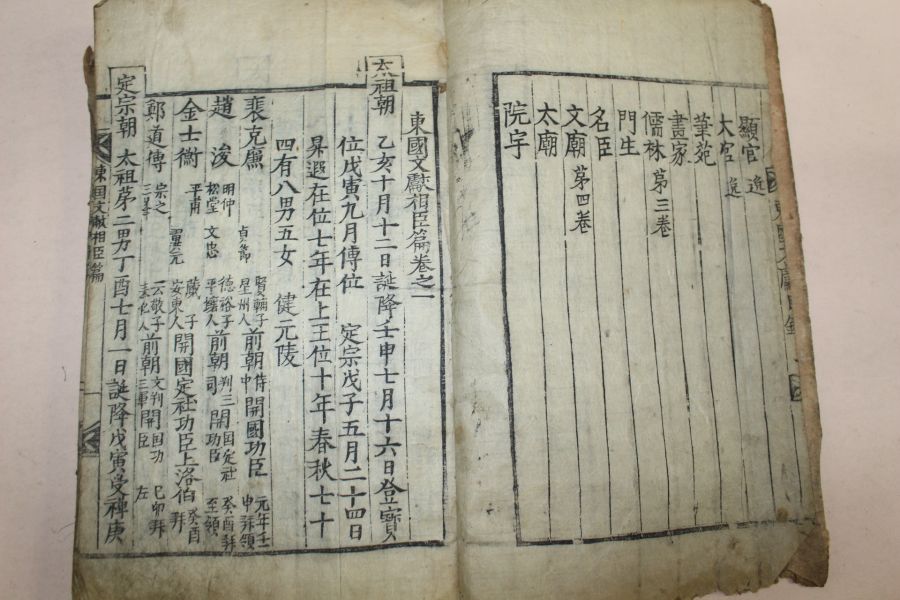 顯官
大官
筆苑
書家
儒林 第三卷
門生
名臣
文廟 第四卷
太廟
院宇
東國文獻相臣篇卷之一
太祖朝 乙亥十月十二日誕降壬申七月十六日登寶
位戊寅九月傳位 定宗戊子五月二十四日
昇遐在位七年在上王位十年春秋七十
四有八男五女 健元陵
裵克廉 貞節 星州人 前朝侍中 開國功臣 元年壬申拜領
趙浚 明仲 松堂 文忠 德裕子 平壤人 前朝判三司 開國定社功臣 癸酉拜至領
金士衡 平甫 翼元 蕆子 安東人 開國定社功臣上洛伯 癸酉拜
鄭道傳 宗之 三峯 云敬子 奉化人 前朝 開國功臣 己卯拜左
定宗朝 太祖第二男丁酉七月一日誕降戊寅受禪庚
東國文獻相臣篇